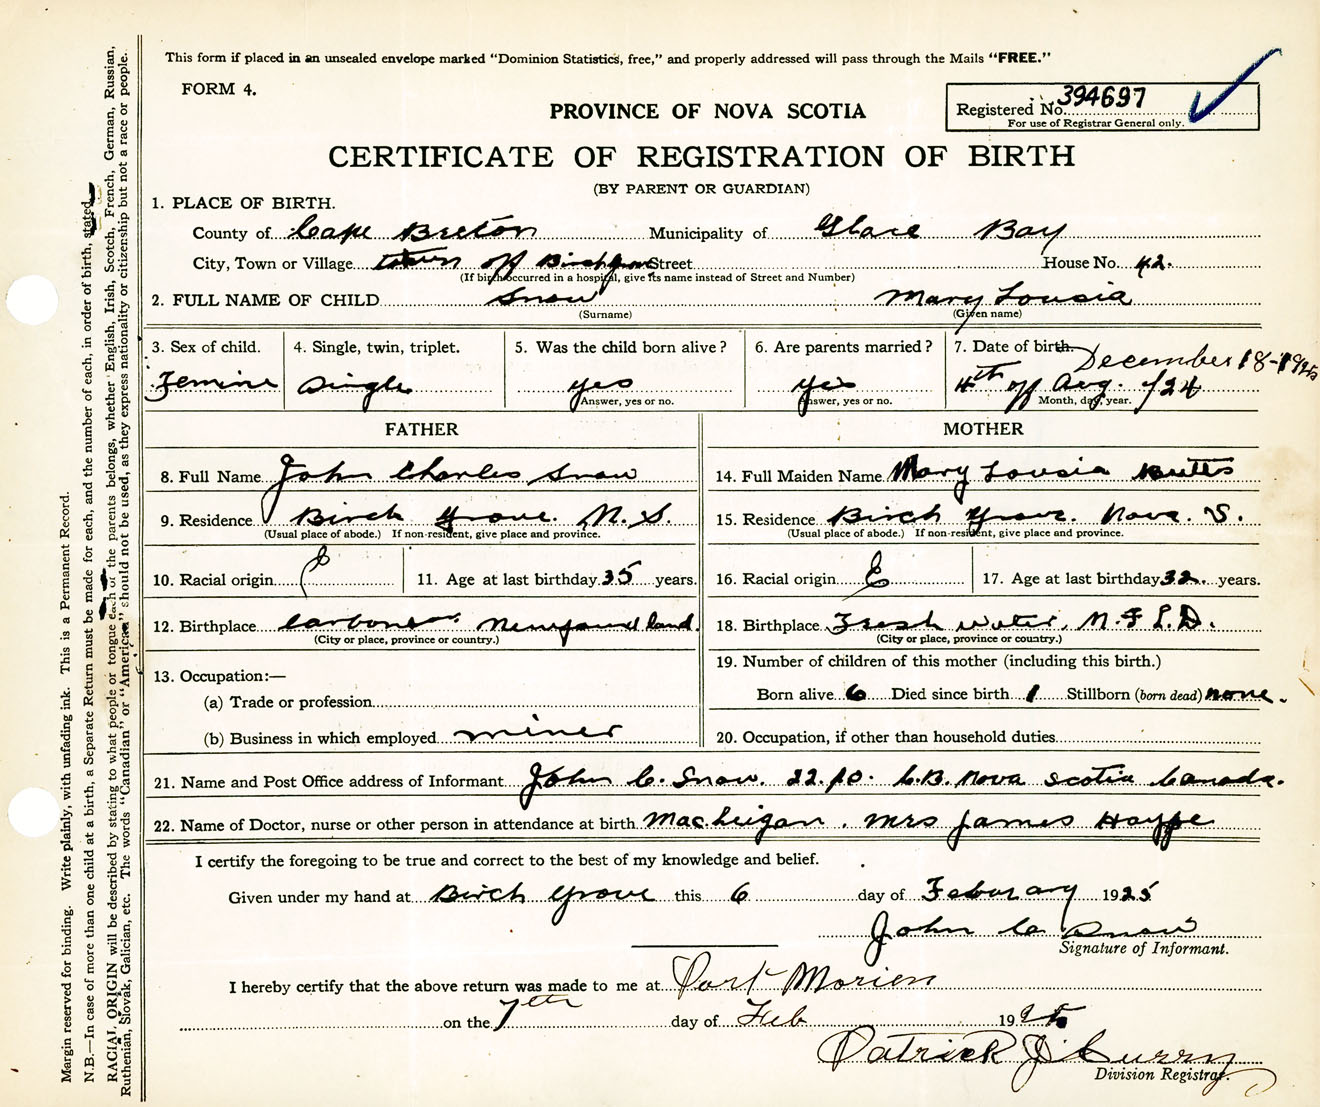 This form if placed in an unsealed envelope marked "Dominion Statistics, free," and properly addressed will pass through the Mails "FREE."
FORM 4.
PROVINCE OF NOVA SCOTIA
Registered No. 394697
For use of Registrar General only.
CERTIFICATE OF REGISTRATION OF BIRTH
(BY PARENT OR GUARDIAN)
1. PLACE OF BIRTH.
County of Cape Breton Municipality of Glace Bay
City, Town or Village town of Birchgrove Street House No. 42.
(If birth occurred in a hospital, give its name instead of Street and Number)
2. FULL NAME OF CHILD Snow Mary Lousia
(Surname) (Given name)
3. Sex of child. 4. Single, twin, triplet. 5. Was the child born alive? 6. Are parents married? 7. Date of birth.
December 18-1925
Femine Single yes yes 4th of Aug. /24
Answer, yes or no. Answer, yes or no. Month, day, year.
FATHER MOTHER
8. Full Name John Charles Snow 14. Full Maiden Name Mary Lousia Butts
9. Residence Birch Grove. N. S. 15. Residence Birch Grove. Nova. S.
(Usual place of abode.) If non-resident, give place and province. (Usual place of abode.) If non-resident, give place and province.
10. Racial origin E 11. Age at last birthday 35 years. 16. Racial origin E 17. Age at last birthday 32 years.
12. Birthplace Carbonear Newfoundland. 18. Birthplace Fresh water, N. F. L. D.
(City or place, province or country.) (City or place, province or country.)
13. Occupation:— 19. Number of children of this mother (including this birth.)
(a) Trade or profession Born alive 6 Died since birth 1 Stillborn (born dead) none.
(b) Business in which employed miner 20. Occupation, if other than household duties
21. Name and Post Office address of Informant John C. Snow. C.B. Nova Scotia Canada.
22. Name of Doctor, nurse or other person in attendance at birth Mrs James
I certify the foregoing to be true and correct to the best of my knowledge and belief.
Given under my hand at Birch Grove this 6 day of Feburary 1925
John C Snow
Signature of Informant.
I hereby certify that the above return was made to me at Port Morien
on the 7th day of Feb 1925
Patrick J Curry
Division Registrar.
Margin reserved for binding. Write plainly, with unfading ink. This is a Permanent Record.
N.B.—In case of more than one child at a birth, a Separate Return must be made for each, and the number of each, in order of birth, stated.
RACIAL ORIGIN will be described by stating to what people or tongue each of the parents belongs, whether English, Irish, Scotch, French, German, Russian,
Ruthenian, Slovak, Galician, etc. The words "Canadian" or "American" should not be used, as they express nationality or citizenship but not a race or people.